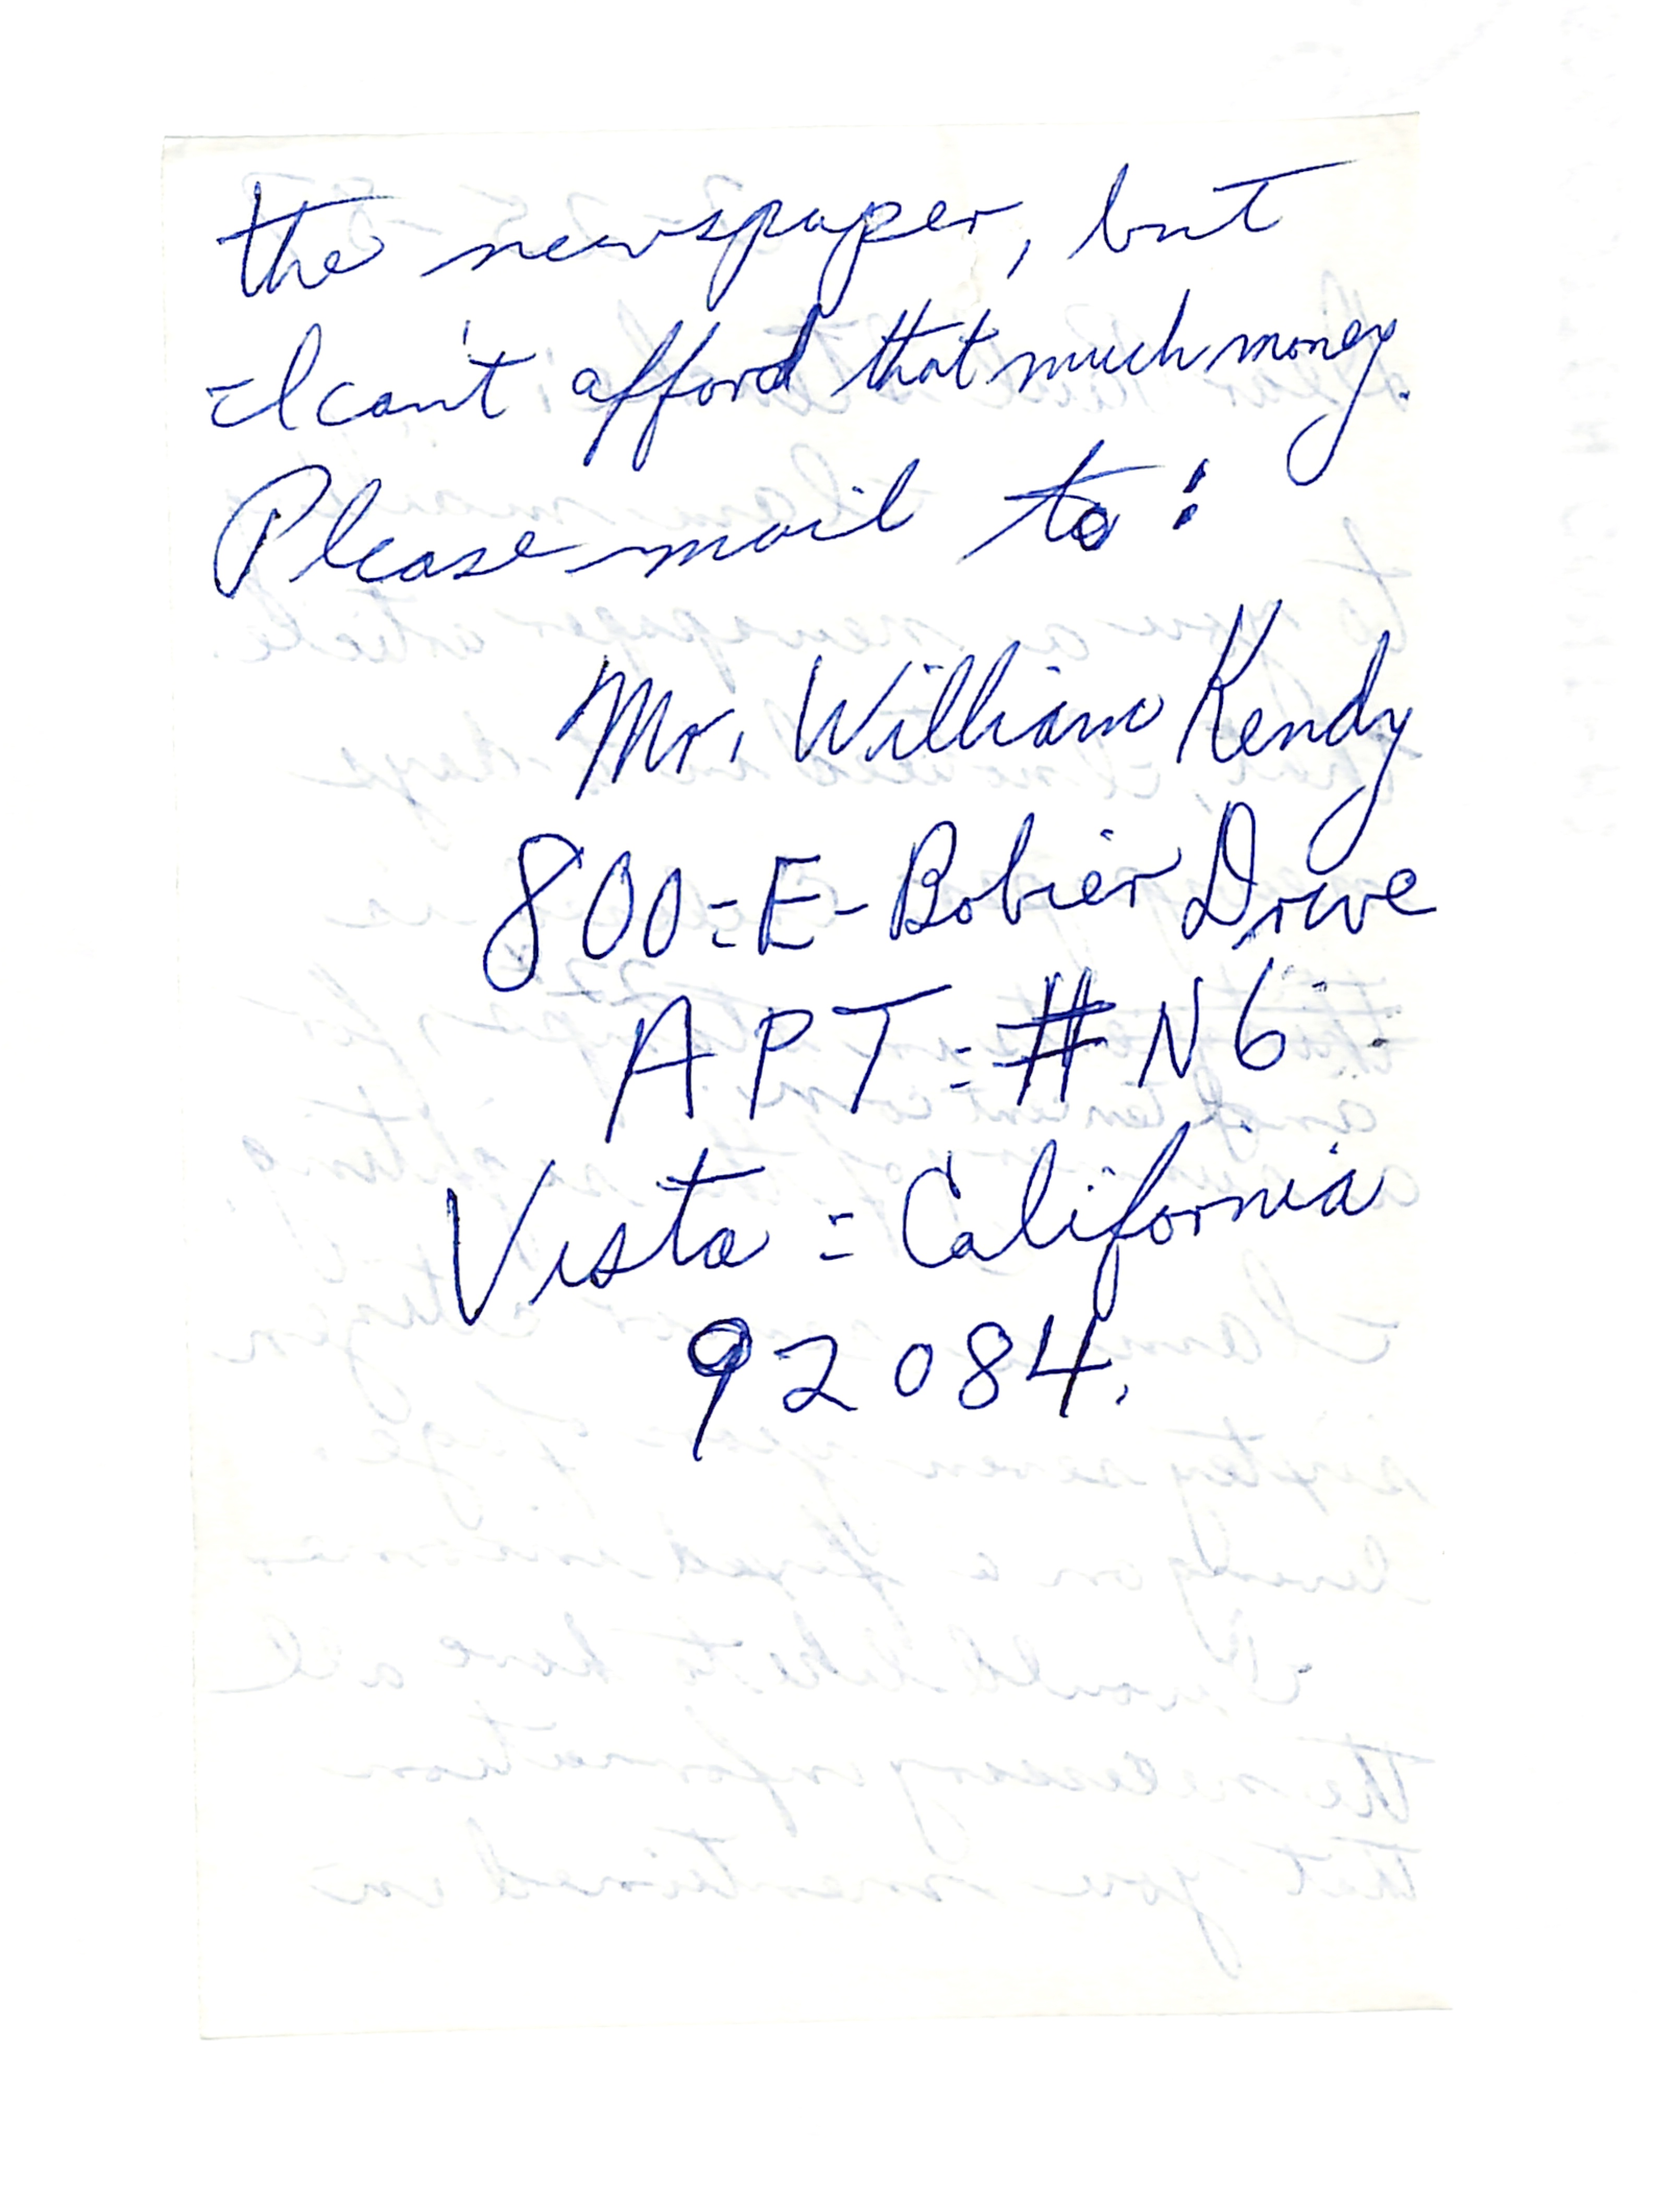 the newspaper, but
I can't afford that much money.
Please mail to:
Mr. William Kendy
800=E-Bobier Drive
APT=#N6
Vista=California
92084.